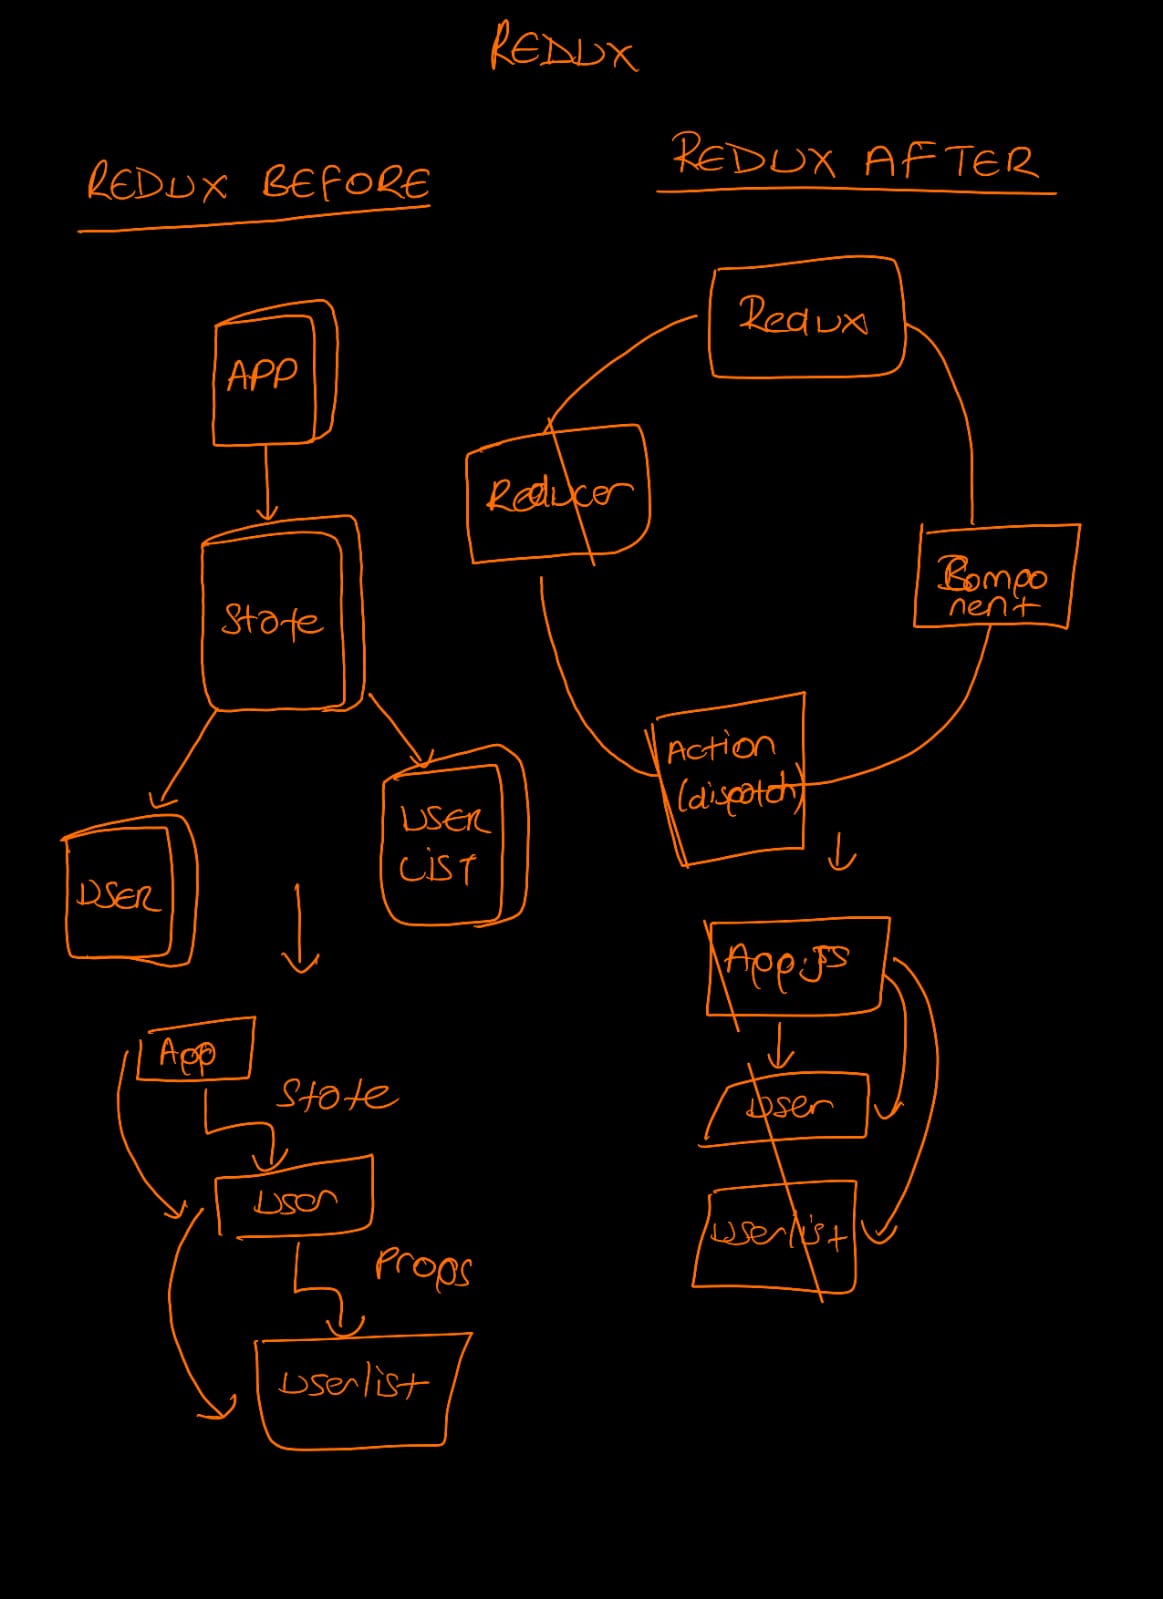 REDUX
REDUX BEFORE
APP
State
USER
USER
LIST
App
State
User
Props
Userlist
REDUX AFTER
Redux
Reducer
Bompo
nent
Action
(dispatch)
App.JS
User
Userlist